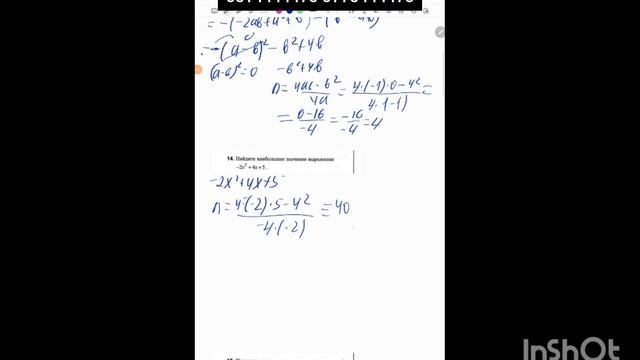 = -(-2ab+a²+b²)-(b²-4b)
-(a-b)² - b²+4b
(a-b)²=0 -b²+4b
n = 4ac-b² / 4a = 4·(-1)·0-4² / 4·(-1) =
= 0-16 / -4 = -16 / -4 = 4
14. Найдите наибольшее значение выражения
-2x² + 4x + 5.
-2x²+4x+5
n = 4·(-2)·5-4² / -4·(-2) = 40
InShOt